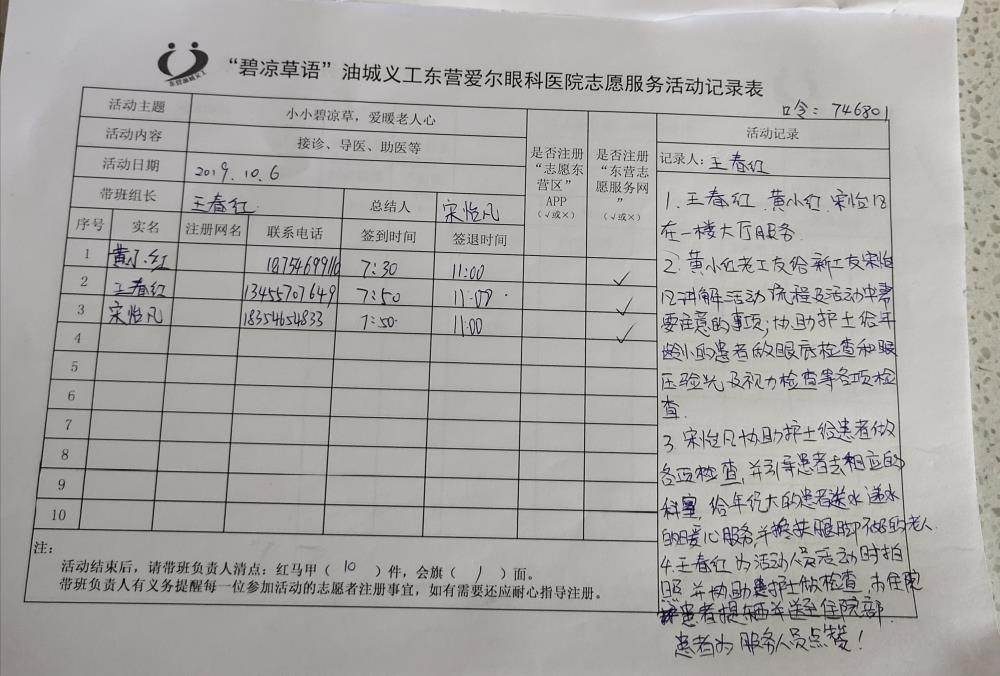 东营油城义工
“碧凉草语”油城义工东营爱尔眼科医院志愿服务活动记录表
口令: 746801
活动主题 小小碧凉草，爱暖老人心
活动内容 接诊、导医、助医等
活动日期 2019.10.6
带班组长 王春红 总结人 宋怡凡
是否注册“志愿东营区”APP（√或×）
是否注册“东营志愿服务网”（√或×）
序号 实名 注册网名 联系电话 签到时间 签退时间
1 黄小红 1875469911 7:30 11:00 √
2 王春红 13455707649 7:50 11:00 √
3 宋怡凡 18354654833 7:50 11:00 √
4
5
6
7
8
9
10
注:
活动结束后，请带班负责人清点：红马甲（ 10 ）件，会旗（ 1 ）面。
带班负责人有义务提醒每一位参加活动的志愿者注册事宜，如有需要还应耐心指导注册。
活动记录
记录人: 王春红
1. 王春红 黄小红 宋怡凡
在一楼大厅服务
2. 黄小红老工友给新工友宋怡
凡讲解活动流程及活动中需
要注意的事项; 协助护士给年
龄小的患者做眼底检查和眼
压验光及视力检查等各项检
查.
3. 宋怡凡协助护士给患者做
各项检查, 并引导患者去相应的
科室, 给年纪大的患者送水递水
的暖心服务, 并搀扶腿脚不好的老人.
4. 王春红为活动人员活动时拍
照 并协助护士做检查. 为住院
患者提东西并送至住院部.
患者为服务人员点赞!